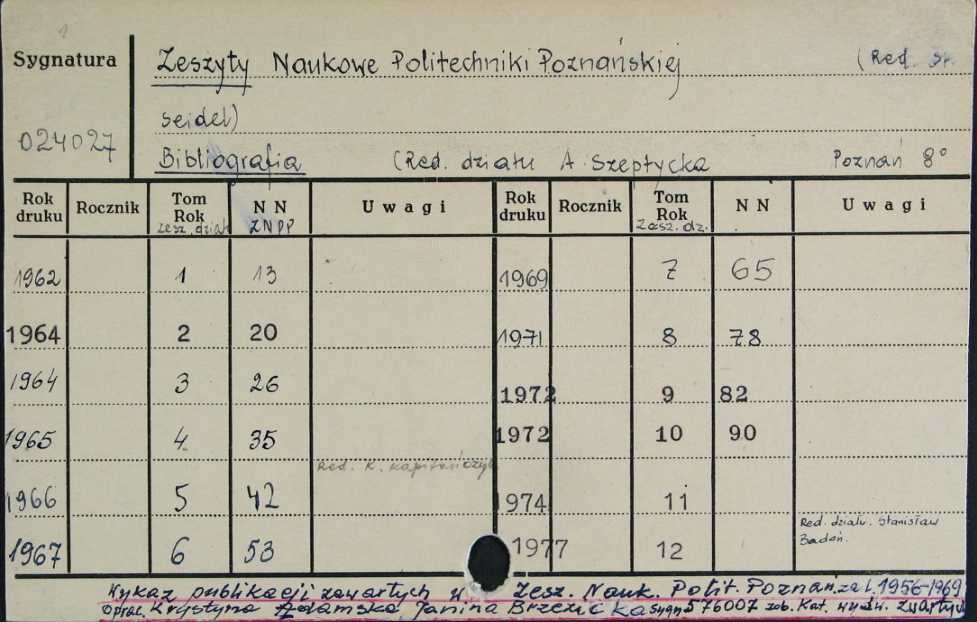 1
Sygnatura Zeszyty Naukowe Politechniki Poznańskiej (Red. St.
Seidel)
024027
Bibliografia (Red. działu A Szeptycka Poznań 8°
Rok druku Rocznik Tom Rok zesz. dział. N N ZNPP Uwagi Rok druku Rocznik Tom Rok Zesz. dz. N N Uwagi
1962 1 13 1969 7 65
1964 2 20 1971 8 78
1964 3 26 1972 9 82
1965 4 35 1972 10 90
Red. K. Kapitańczyk
1966 5 42 1974 11
Red. działu. Stanisław
Badoń.
1967 6 53 1977 12
Wykaz publikacji zawartych w Zesz. Nauk. Polit. Poznań za l. 1956-1969
oprac. Krystyna Adamska, Janina Brzezicka sygn. 576007 zob. Kat. wydw. zwartych